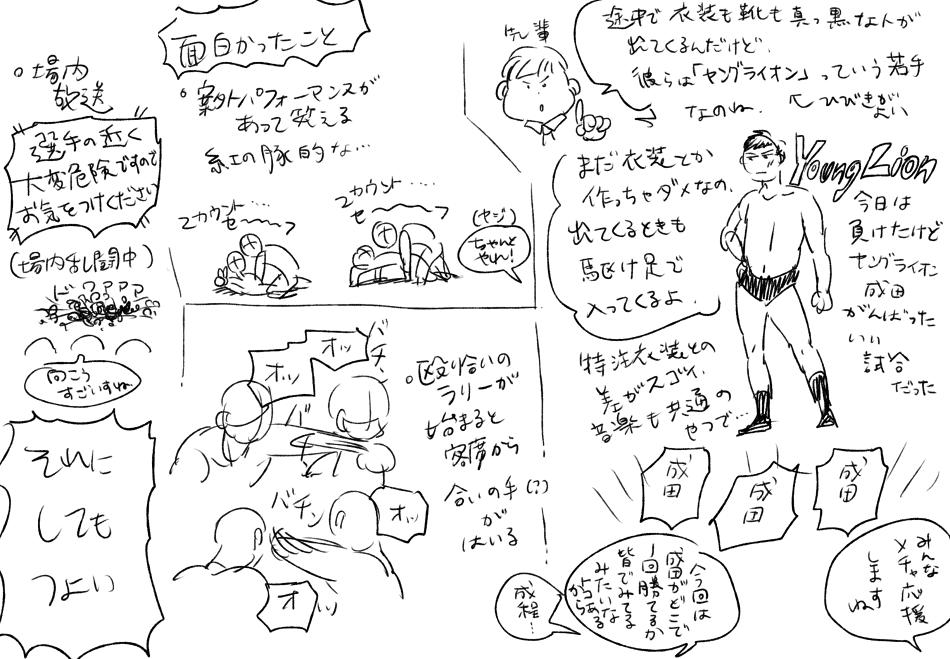 途中で衣装も靴も真っ黒な人が
出てくるんだけど、
彼らは「ヤングライオン」っていう若手
なのね。
ひびきが
よい
先輩
Young Lion
まだ衣装とか
作っちゃダメなの、
出てくるときも
駆け足で
入ってくるよ。
今日は
負けたけど
ヤングライオン
成田
がんばった
いい
試合
だった
特注衣装との
差がスゴイ、
音楽も共通の
やつで…
成田
成田
成田
みんな
メチャ応援
します
ね
今回は
成田がどこで
1回勝てるか
皆でみてる
みたいな
とこあるから
成程…
面白かったこと
案外パフォーマンスが
あって笑える
紅の豚的な…
2カウント…
せ〜〜
2カウント…
せ〜〜
(ヤジ)
ちゃんと
やんし!
殴り合いの
ラリーが
始まると
客席から
合いの手(?)
が
はいる
バチン
オッ
オッ
バチン
オッ
オッ
場内
放送
選手の近く
大変危険ですので
お気をつけください
(場内乱闘中)
ドワアアアア
向こう
すごいすね
それに
しても
つよい